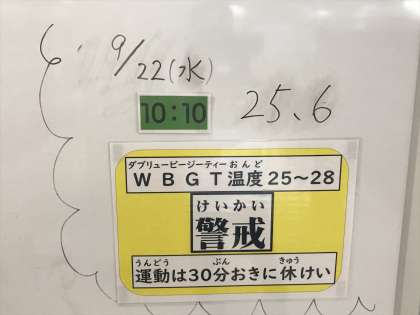 9/22(水)
10:10
25.6
ダブリュービージーティーおんど
WBGT温度25～28
けいかい
警戒
うんどう ぷん きゅう
運動は30分おきに休けい